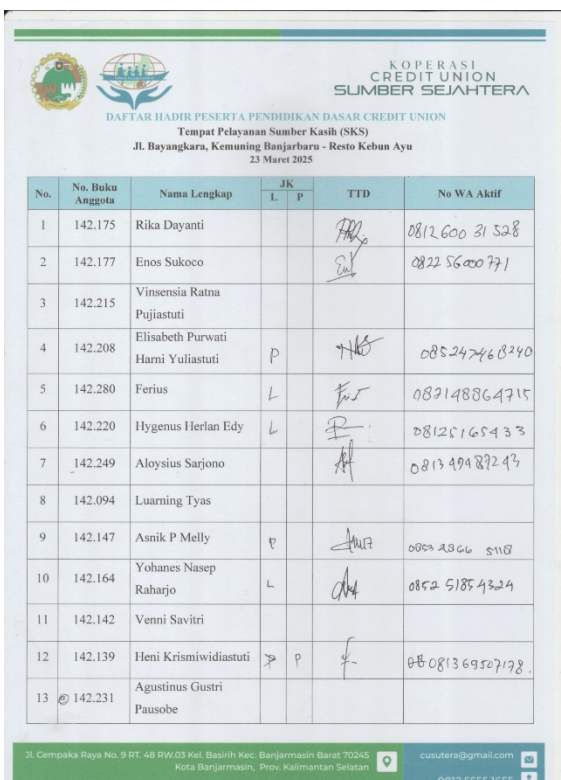 KOPERASI
CREDIT UNION
SUMBER SEJAHTERA
DAFTAR HADIR PESERTA PENDIDIKAN DASAR CREDIT UNION
Tempat Pelayanan Sumber Kasih (SKS)
Jl. Bayangkara, Kemuning Banjarbaru - Resto Kebun Ayu
23 Maret 2025
No. No. Buku Anggota Nama Lengkap JK L P TTD No WA Aktif
1 142.175 Rika Dayanti 0812 600 31 528
2 142.177 Enos Sukoco 0822 56000 771
3 142.215 Vinsensia Ratna
Pujiastuti
4 142.208 Elisabeth Purwati
Harni Yuliastuti P 085247468240
5 142.280 Ferius L 082148864715
6 142.220 Hygenus Herlan Edy L 08125165433
7 142.249 Aloysius Sarjono
8 142.094 Luarning Tyas
9 142.147 Asnik P Melly P
10 142.164 Yohanes Nasep
Raharjo L 0852 51854324
11 142.142 Venni Savitri
12 142.139 Heni Krismiwidiastuti P P 081369507178.
13 142.231 Agustinus Gustri
Pausobe
Jl. Cempaka Raya No. 9 RT. 48 RW.03 Kel. Basirih Kec. Banjarmasin Barat 70245
Kota Banjarmasin, Prov. Kalimantan Selatan
cusutera@gmail.com